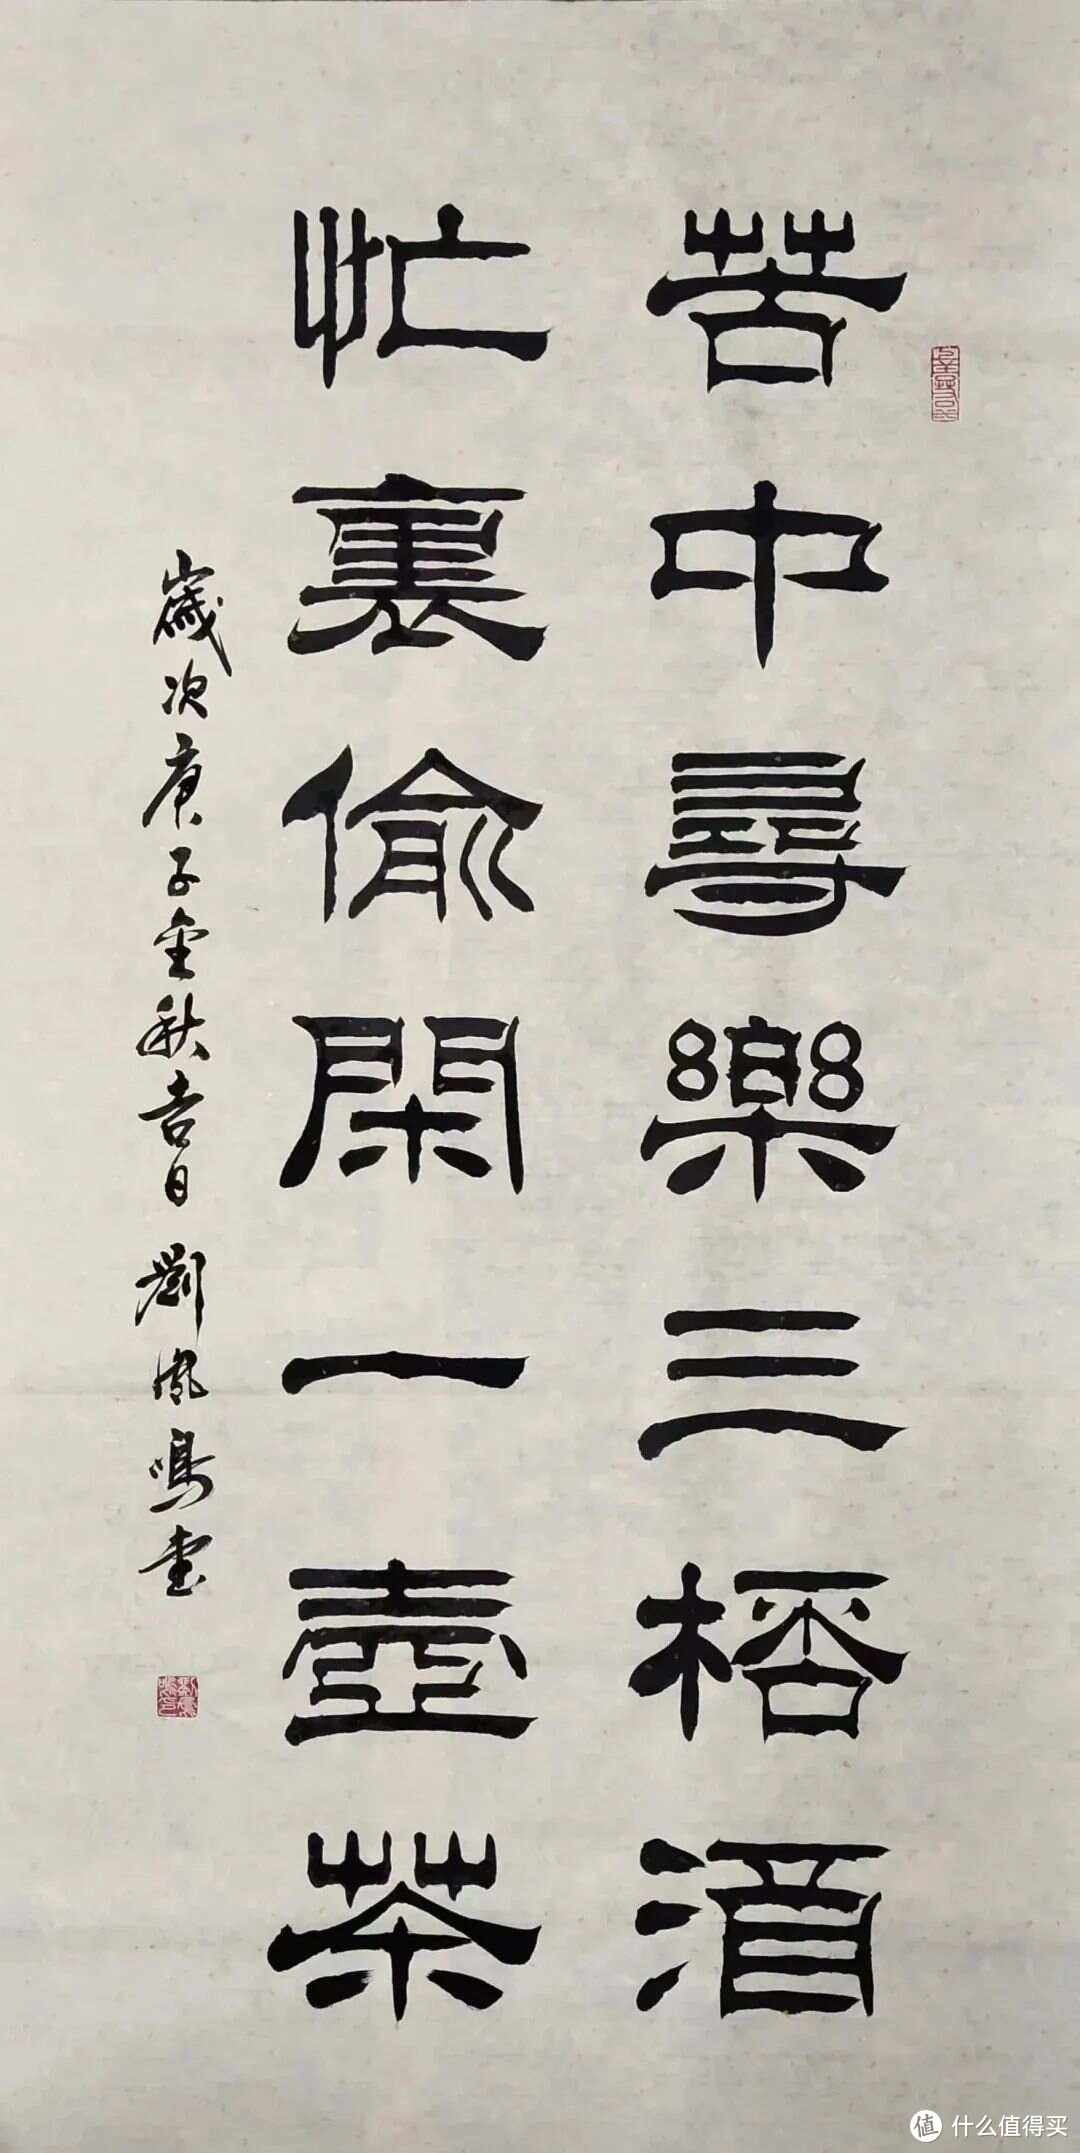 苦中尋樂三桮酒
忙裏偷閑一壺茶
歲次庚子金秋吉日 劉鳳鳴書
值 什么值得买